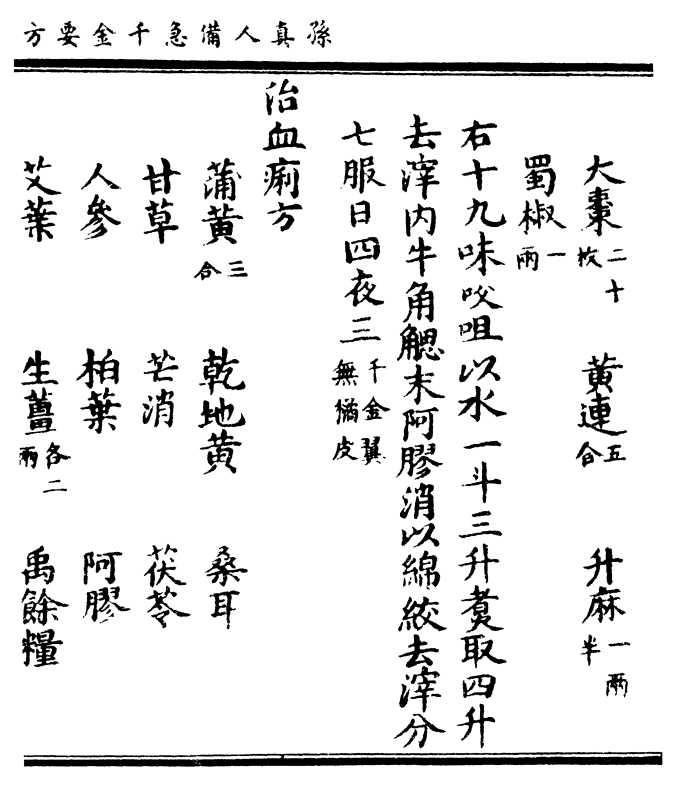 孫真人備急千金要方
大棗二十枚 黃連五合 升麻一兩半
蜀椒一兩
右十九味㕮咀以水一斗三升煑取四升
去滓内牛角䚡末阿膠消以綿絞去滓分
七服日四夜三千金翼無猬皮
治血痢方
蒲黃三合 乾地黃 桑耳
甘草 芒消 茯苓
人參 柏葉 阿膠
艾葉 生薑各二兩 禹餘糧